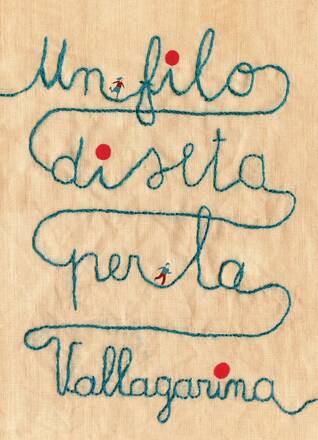 Un filo
di seta
per la
Vallagarina